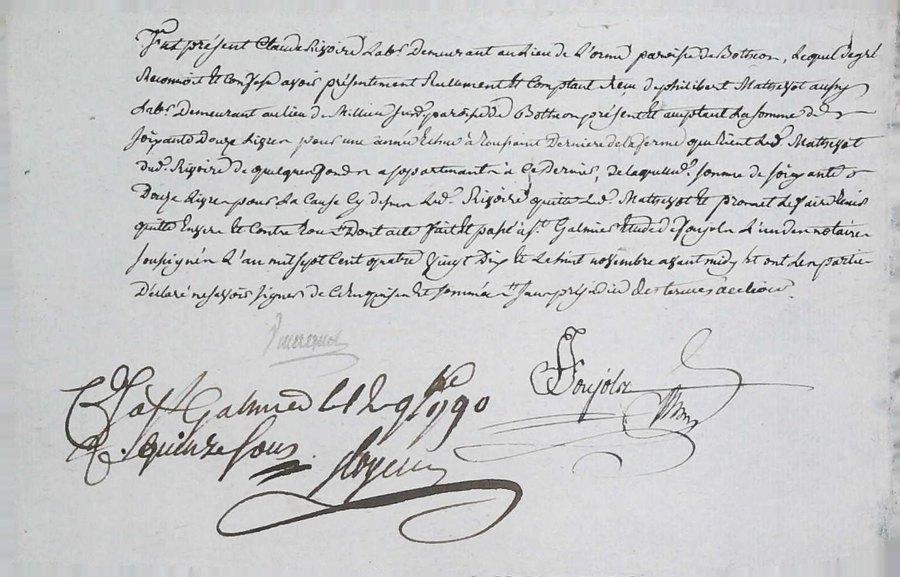 Fut présent Claude Rivoire Lab.r Demeurant au Lieu de L'orme paroisse de Botheon, Lequel de gré
Reconnoit Et Confesse avoir présentement Reellement Et Comptant Reçu de philibert Mathevot aussy
Lab.r Demeurant au lieu de Millieu Sus.d paroisse de Bothéon présent Et acceptant La somme de
Soixante Douze Livres pour une année Echue à Toussaint Derniere de la ferme que tient Led. Mathevot
dud. Rivoire de quelques fonds appartenants à Ce Dernier, de laquelle d. somme de soixante
Douze Livres pour La Cause Cy dessus Led. Rivoire quitte Le d. Mathevot Et promet Le faire tenir
quitte Envers Et Contre tous Dont acte fait Et passé à S.t Galmier Etude de Poujols L'un des notaires
Soussignés L'an mil sept Cent quatre Vingt Dix Et Le huit novembre avant midy Et ont Les parties
Déclaré ne savoir signer de Ce Enquises Et sommées sans préjudice des termes à échoir.
Poujols
C.lé à S.t Galmier Le 9.bre 1790
R. quinze sous